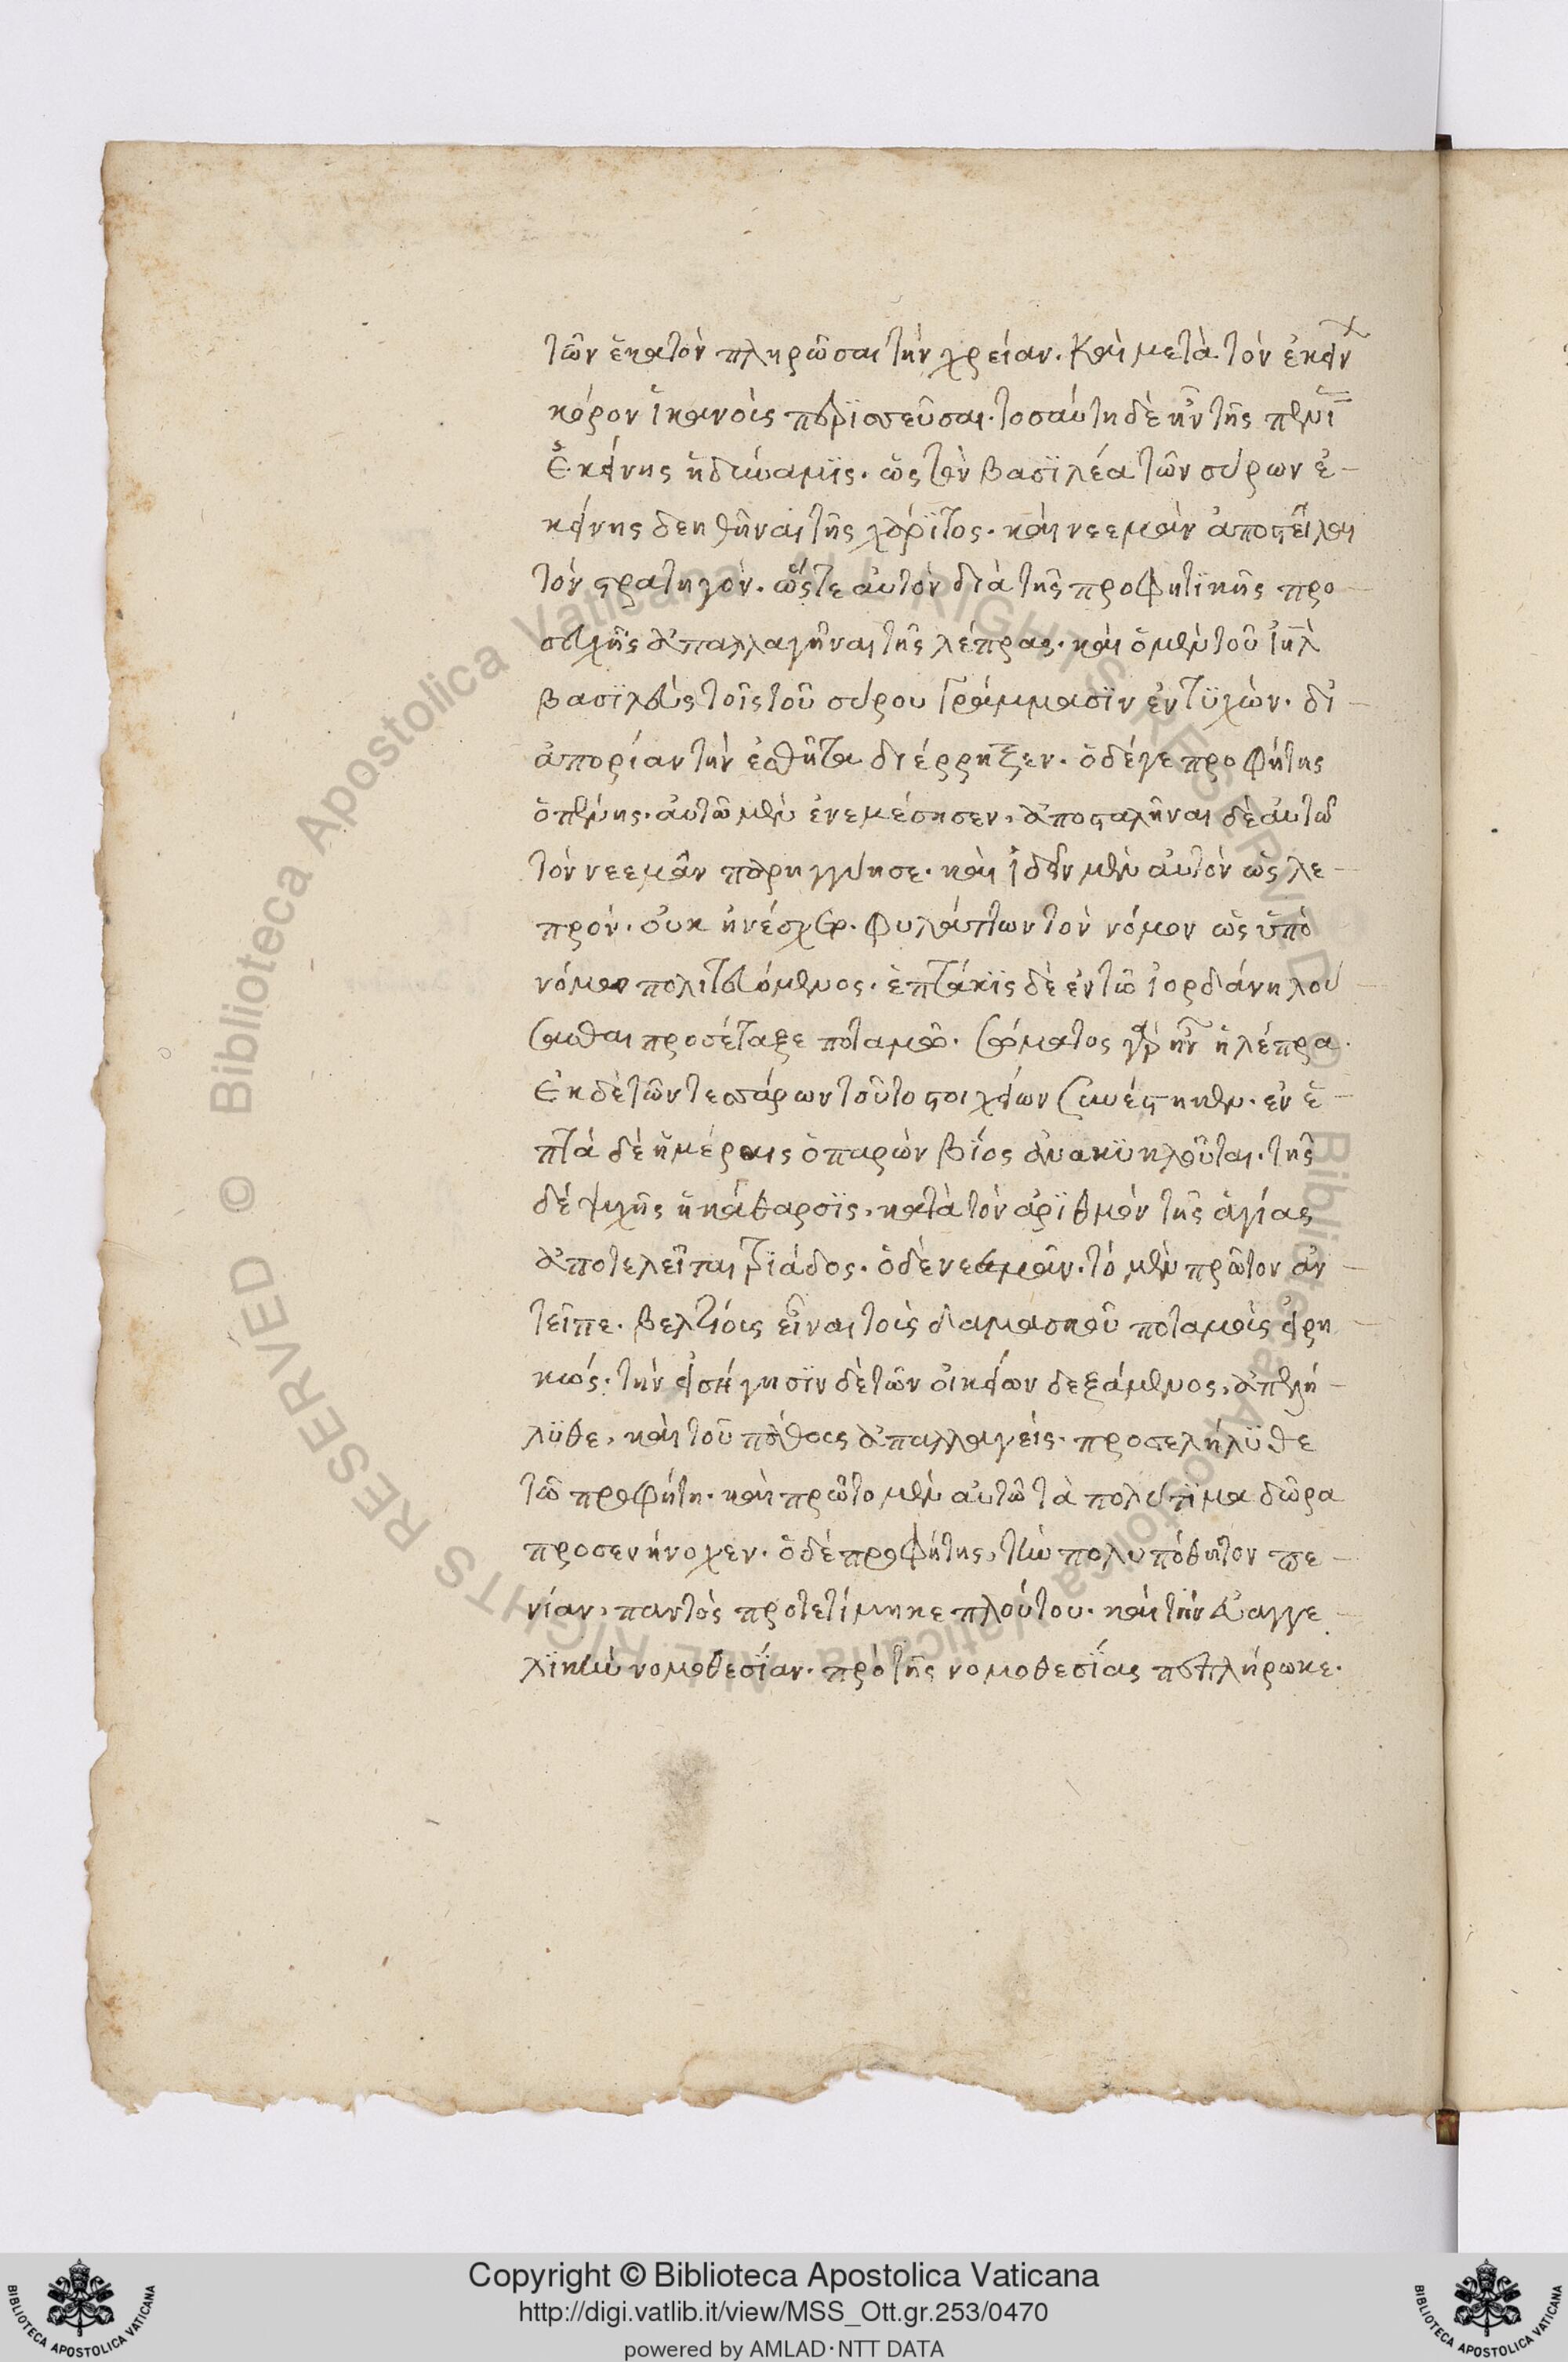 τῶν ἑκατὸν πληρῶσαι τὴν χρείαν. Καὶ μετὰ τὸν ἐκείν
κόρον ἱκανοὶς περϊσσεῦσαι. τοσαύτη δὲ ἦν τῆς πενϊ
Ἐκείνης ἡ δύναμϊς. ὡς τὸν βασϊλέα τῶν σύρων ἐ-
κείνης δεηθῆναι τῆς χάρϊτος. καὶ νεεμὰν ἀποστεῖλαι
τὸν στρατηγόν. ὥστε αὐτὸν διὰ τῆς προφητϊκῆς προ-
σευχῆς ἀπαλλαγῆναι τῆς λέπρας. καὶ ὁ μὲν τοῦ ἰηλ
βασϊλεὺς τοῖς τοῦ σύρου γράμμασϊν ἐντϋχὼν. δι-
ἀπορίαν τὴν ἐσθῆτα διέρρηξεν. ὁ δέ γε προφήτης
ὁ πένης. αὐτῶ μὲν ἐνεμέσησεν, ἀποσταλῆναι δὲ αὐτῶ
τὸν νεεμὰν παρηγγύησε. καὶ ἰδεῖν μὲν αὐτὸν ὡς λε-
πρόν. οὐκ ἠνέσχετο. φυλάττων τὸν νόμον ὡς ὑπὸ
νόμον πολιτευόμενος. ἑπτάκϊς δὲ ἐν τῶ ἰορδάνη λού
σασθαι προσέταξε ποταμῶ. σώματος γὰρ ἦν ἡ λέπρα.
Ἐκ δὲ τῶν τεσσάρων τοῦτο στοιχείων συνέστηκεν. ἐν ἑ-
πτὰ δὲ ἡμέραις ὁ παρὼν βΐος ἀνακϋκλοῦται. τῆς
δέ ψυχῆς ἡ κάθαρσϊς, κατὰ τὸν ἀρϊθμὸν τῆς ἁγίας
ἀποτελεῖται τρϊάδος. ὁ δὲ νεεμὰν. τὸ μὲν πρῶτον ἀν-
τεῖπε. βελτίοις εἶναι τοὶς δαμασκοῦ ποταμοὶς εἰρη-
κώς. τὴν εἰσήγησϊν δὲ τῶν οἰκείων δεξάμενος, ἀπελή-
λϋθε, καὶ τοῦ πάθους ἀπαλλαγείς. προσελήλϋθε
τῶ προφήτη. καὶ πρῶτο μὲν αὐτῶ τὰ πολύτϊμα δῶρα
προσενήνοχεν. ὁ δέ προφήτης, τὴν πολυπόθητον πε-
νίαν, παντὸς προτετίμηκε πλούτου. καὶ τὴν εὐαγγε-
λϊκὴν νομοθεσΐαν. πρὸ τῆς νομοθεσΐας πεπλήρωκε.
Copyright © Biblioteca Apostolica Vaticana
http://digi.vatlib.it/view/MSS_Ott.gr.253/0470
powered by AMLAD·NTT DATA